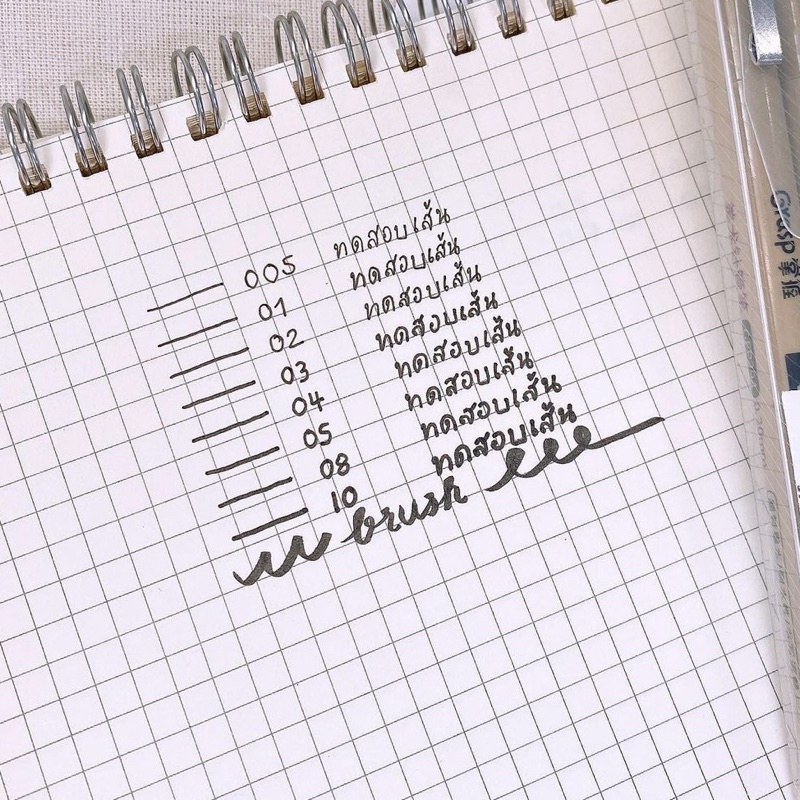 005 ทดสอบเส้น
01 ทดสอบเส้น
02 ทดสอบเส้น
03 ทดสอบเส้น
04 ทดสอบเส้น
05 ทดสอบเส้น
08 ทดสอบเส้น
10 ทดสอบเส้น
brush
Grasp